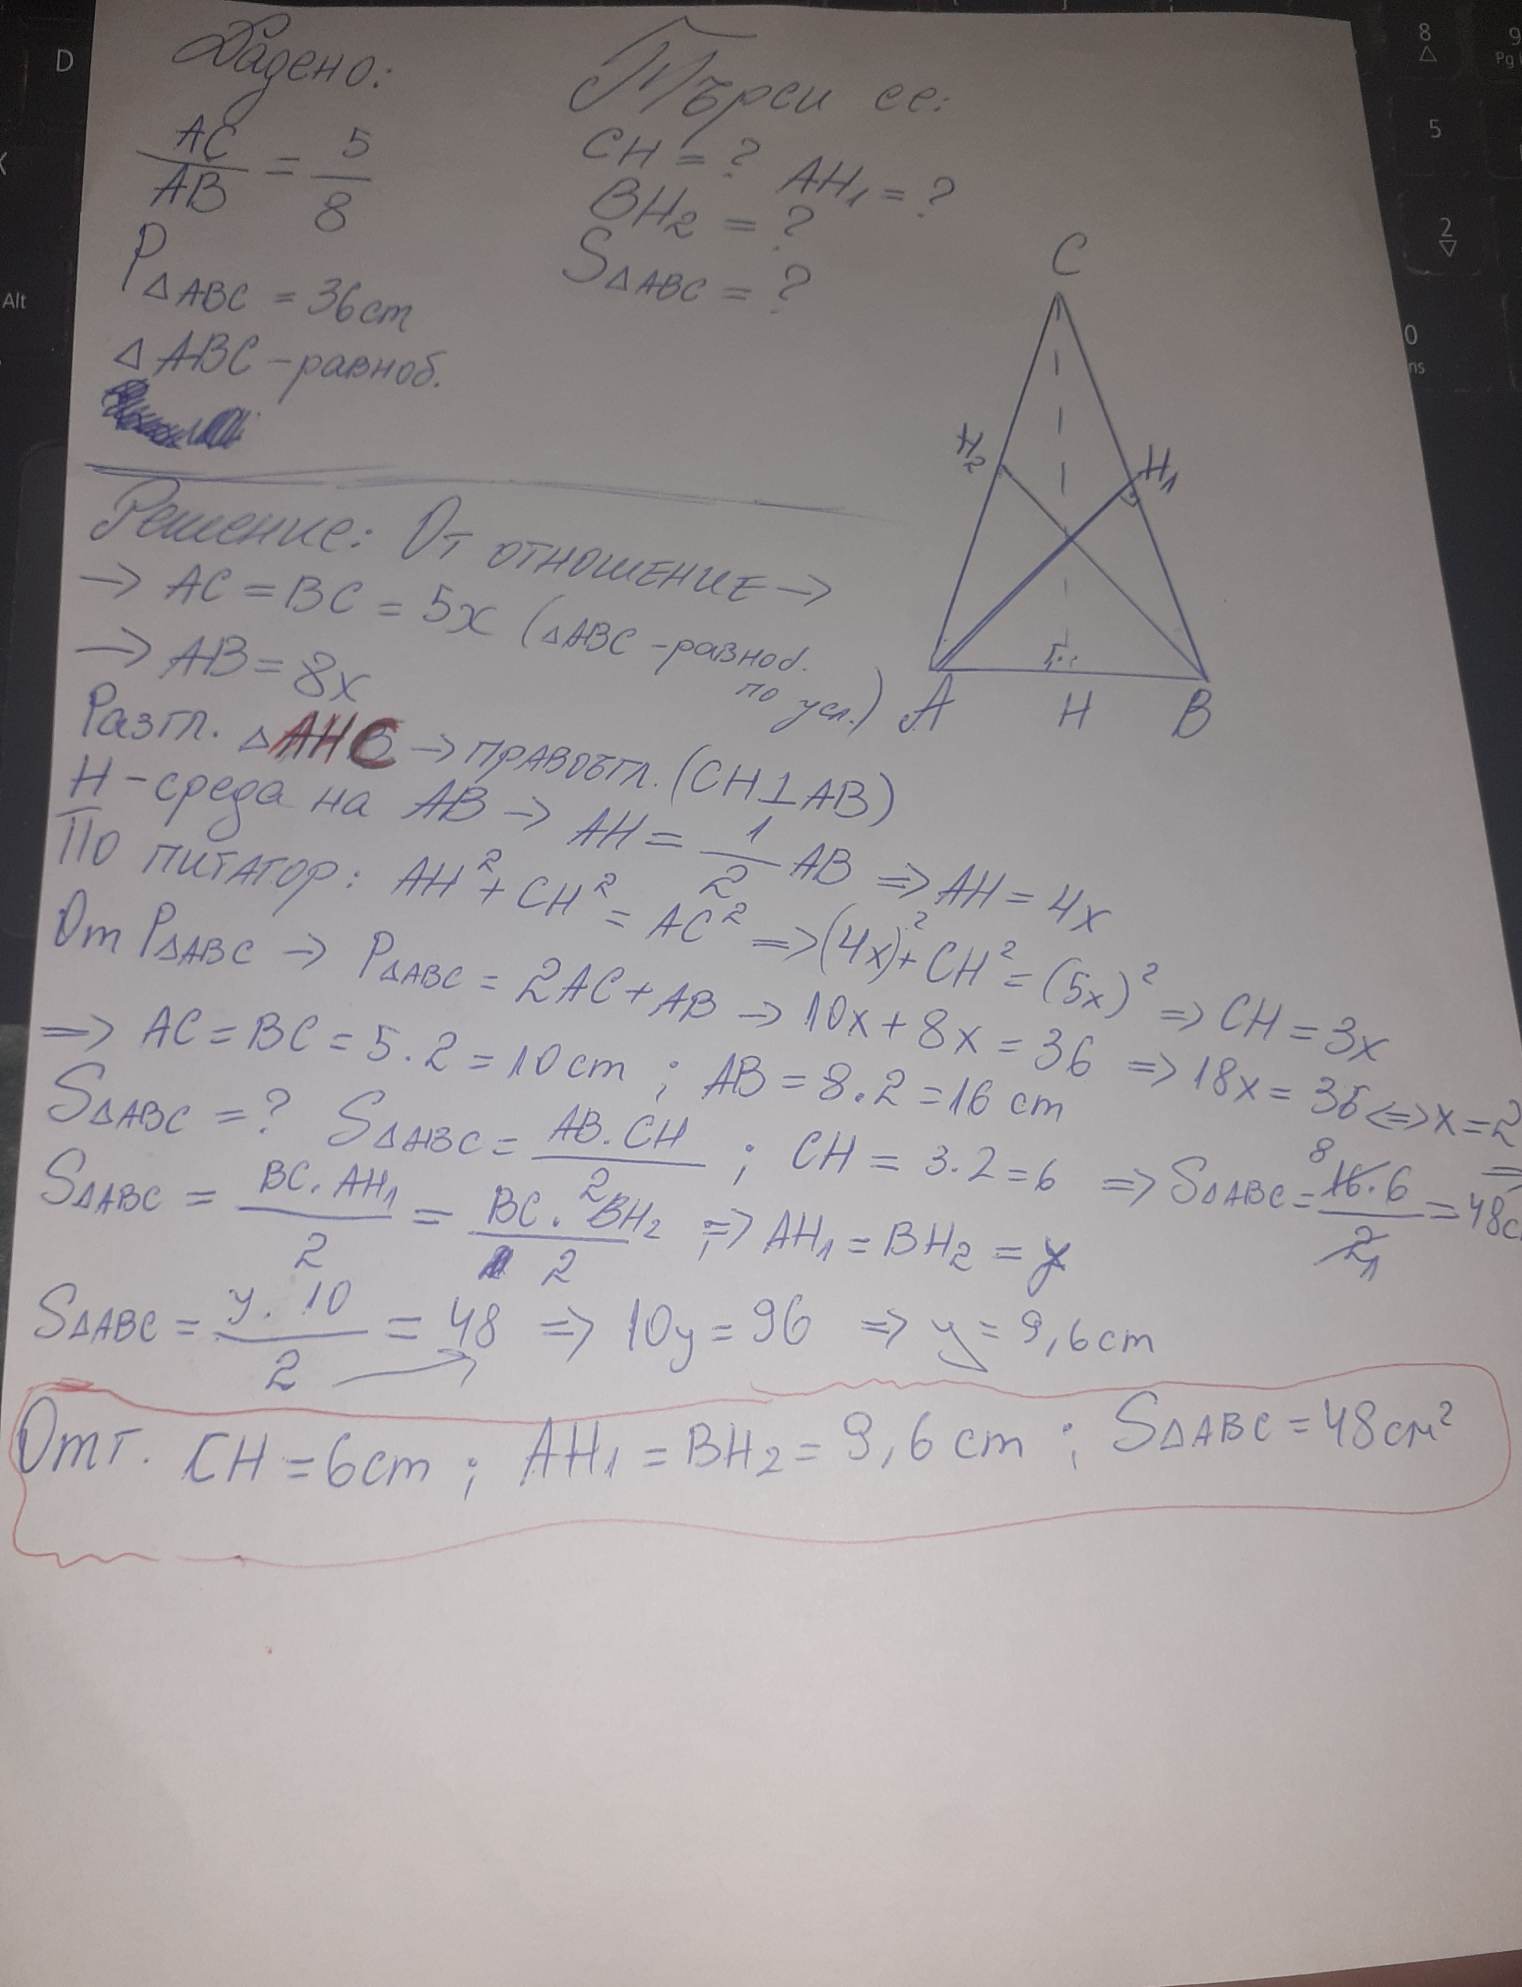 Дадено:
Търси се:
AC/AB = 5/8
CH = ? AH₁ = ?
BH₂ = ?
P△ABC = 36cm
S△ABC = ?
△ABC – равноб.
C
H₂
H₁
A
H
B
Решение: От отношение →
→ AC = BC = 5x (△ABC – равноб. по усл.)
→ AB = 8x
Разгл. △AHC → правоъгл. (CH⊥AB)
H – среда на AB → AH = 1/2 AB ⇒ AH = 4x
По питагор: AH² + CH² = AC² ⇒ (4x)² + CH² = (5x)² ⇒ CH = 3x
От P△ABC → P△ABC = 2AC + AB → 10x + 8x = 36 ⇒ 18x = 36 ⇔ x = 2 ⇒
⇒ AC = BC = 5.2 = 10cm ; AB = 8.2 = 16 cm
S△ABC = ? S△ABC = AB.CH/2 ; CH = 3.2 = 6 ⇒ S△ABC = 16.6/2 = 48c
8
1
S△ABC = BC.AH₁/2 = BC.BH₂/2 ; ⇒ AH₁ = BH₂ = y
S△ABC = y.10/2 = 48 ⇒ 10y = 96 ⇒ y = 9,6cm
Отг. CH = 6cm ; AH₁ = BH₂ = 9,6 cm ; S△ABC = 48см²
D
Alt
8
9
Pg
5
2
0
ns